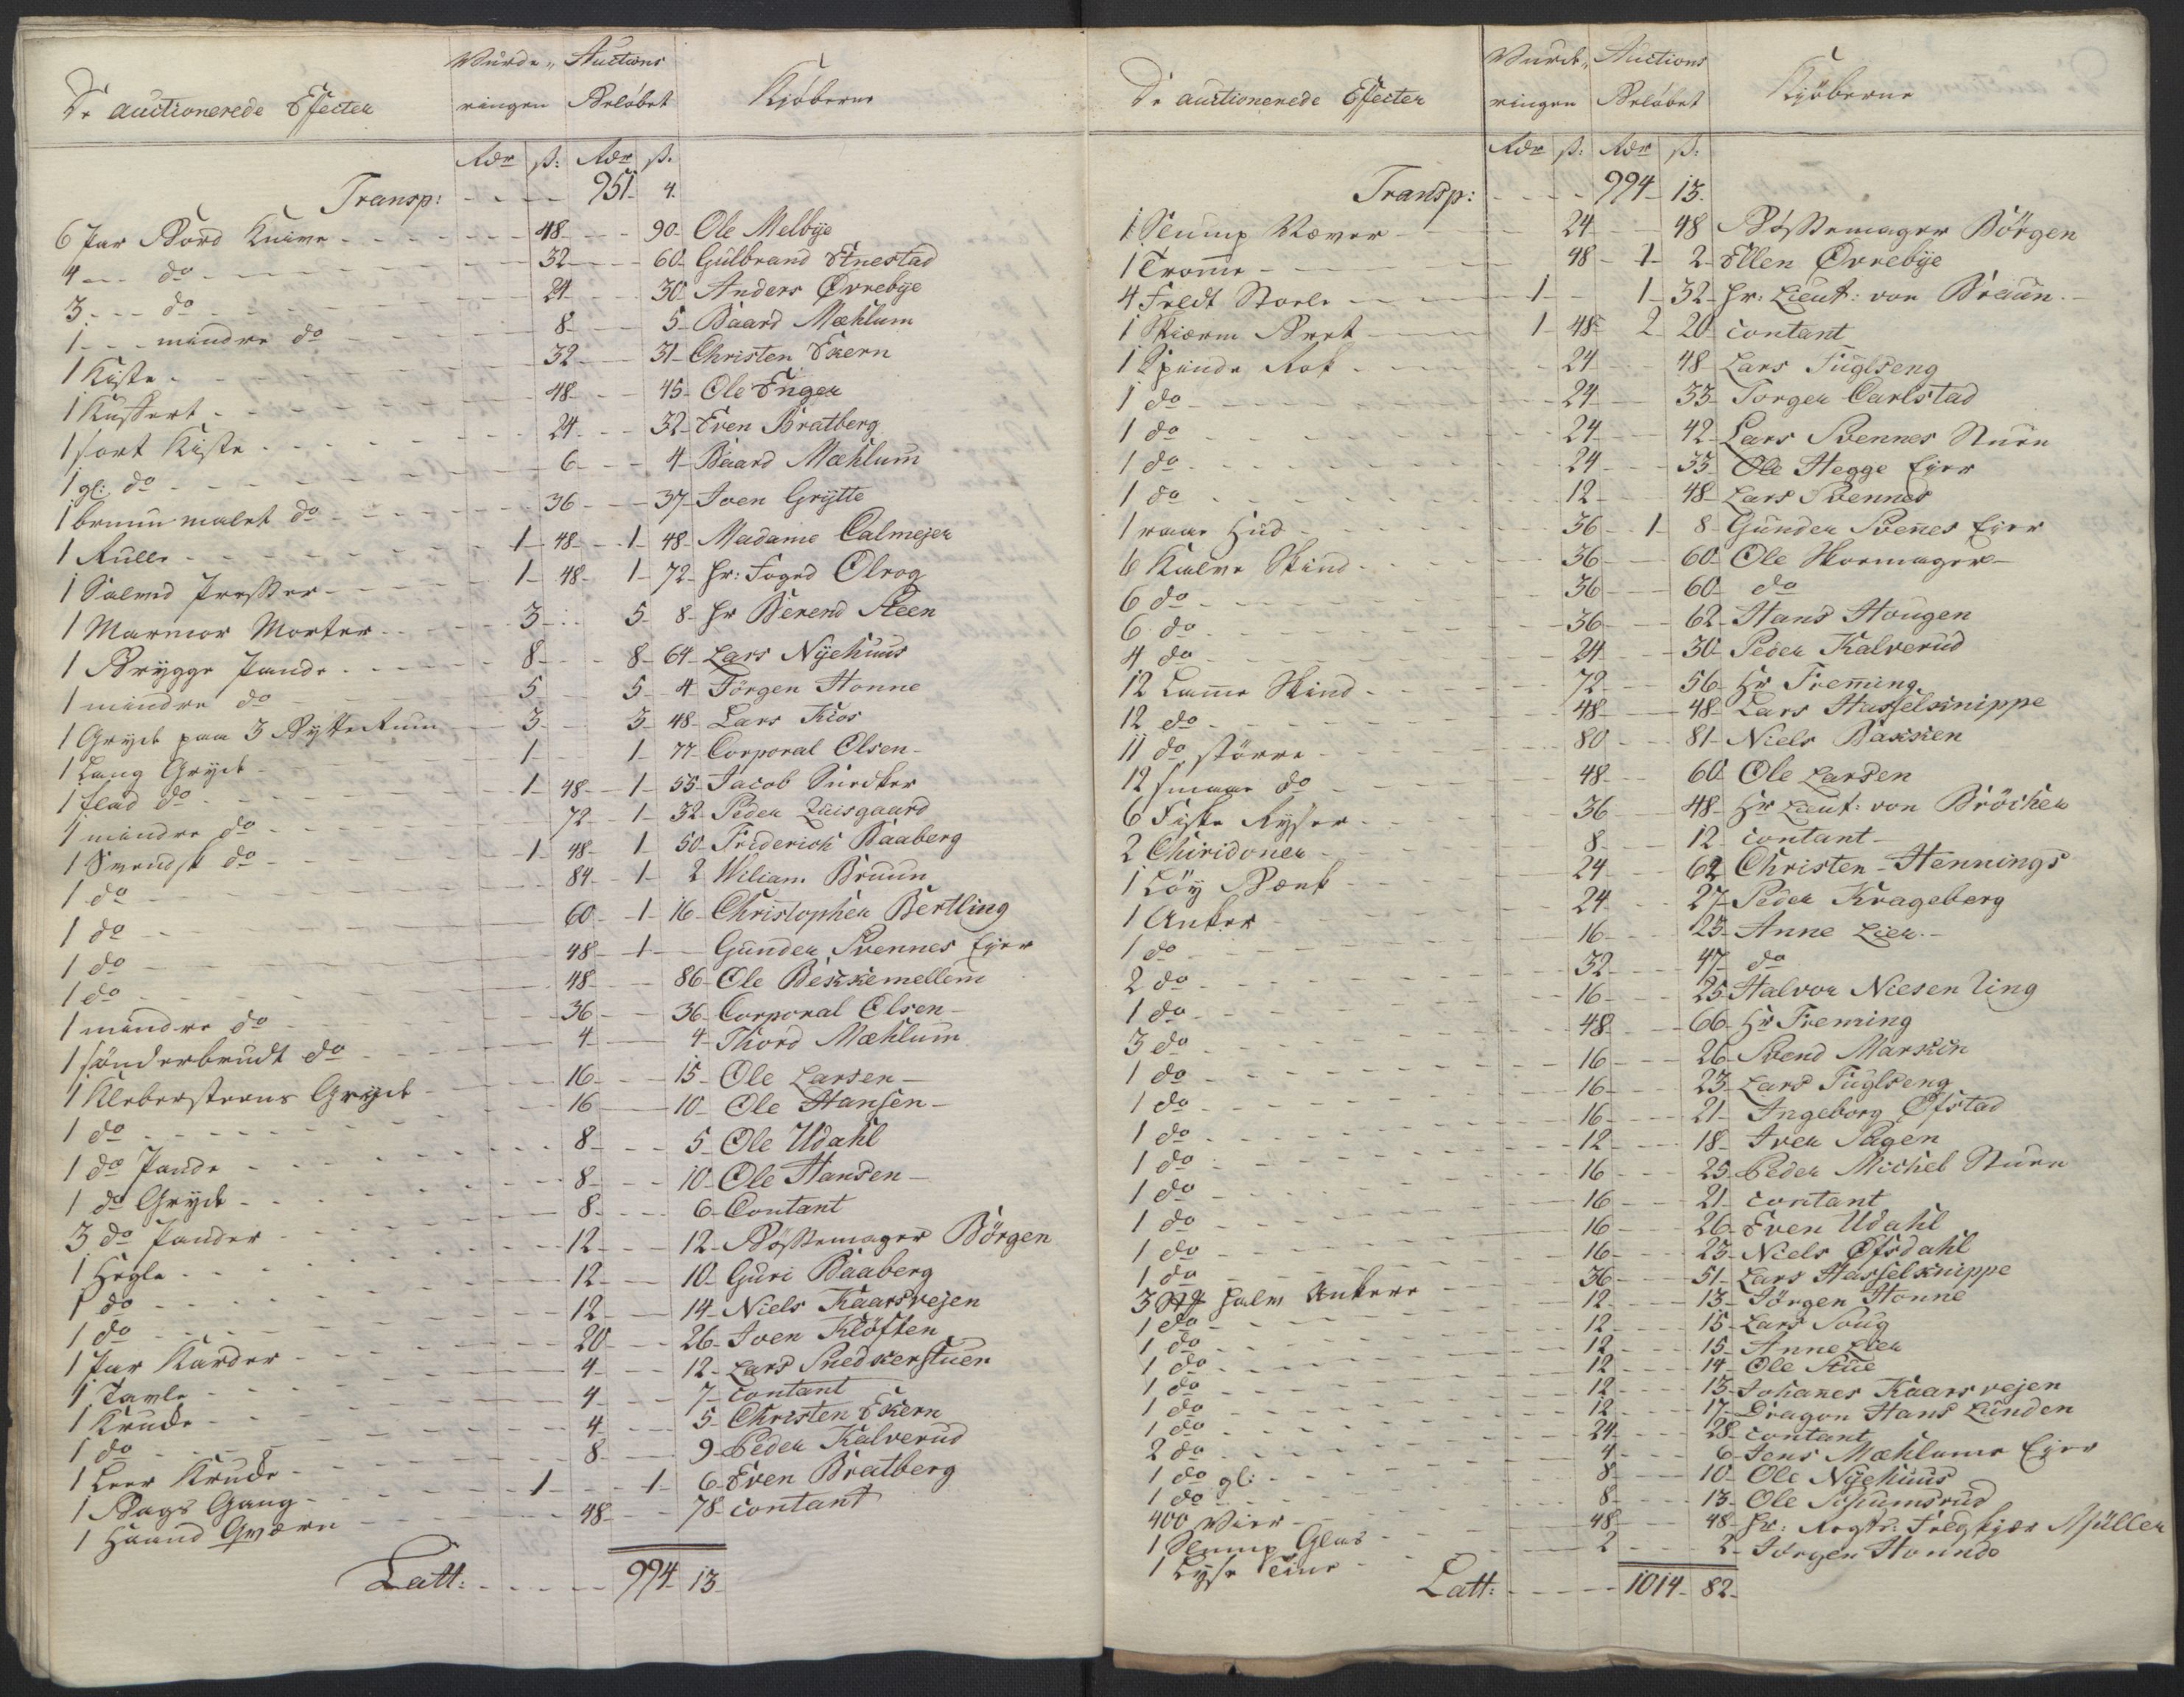 De auctionerede Effecter Vurde- Auctions Kjøberne
ringen Beløbet
Rdr ß: Rdr ß.
Transp: 951 4.
6 Par Bord Knive 48 90 Ole Melbye
4 do 32 60 Gulbrand Etnestad
3 do 24 30 Anders Øvrebye
1 mindre do 8 5 Baard Mæhlum
1 Kiste 32 31 Christen Ekern
1 Kuffert 48 45 Ole Enger
1 sort Kiste 24 32 Even Bratberg
1 gl: do 6 4 Baard Mæhlum
1 bruun malet do 36 37 Iven Grytte
1 Rulle 1 48 1 48 Madame Calmejer
1 Salved Presser 1 48 1 72 Hr: Foged Olrog
1 Marmor Morter 3 5 8 Hr Berend Steen
1 Brygge Pande 8 8 64 Lars Nyehuus
1 mindre do 5 5 4 Jörgen Honne
1 Gryde paa 3 Bytte Rum 3 3 48 Lars Kios
1 Lang Gryde 1 1 77 Corporal Olsen
1 flad do 1 48 1 55 Jacob Snedker
1 mindre do 72 1 32 Peder Quisgaard
1 Svendsk do 1 48 1 50 Friderich Baaberg
1 do 84 1 2 Wiliam Bruun
1 do 60 1 16 Christopher Bertling
1 do 48 1 Gunder Svennes Ejer
1 do 48 86 Ole Bekkemellem
1 mindre do 36 36 Corporal Olsen
1 sønderbrudt do 4 4 Thord Mæhlum
1 Klebersteens Gryde 16 15 Ole Larsen
1 do 16 10 Ole Hansen
1 do Pande 8 5 Ole Udahl
1 do Gryde 8 10 Ole Hansen
3 do Pander 8 6 Contant
1 Hegle 12 12 Bössemager Börgen
1 do 12 10 Guri Baaberg
1 do 12 14 Niels Kaarsvejen
1 Par Karder 20 26 Iven Klöften
1 Tavle 4 12 Lars Snedkerstuen
1 Krukke 4 7 Contant
1 do 4 5 Christen Ekern
1 Leer Krukke 8 9 Peder Kalverud
1 Bags Gang 1 1 6 Even Bratberg
1 Haand Qværn 48 78 contant
Latt: 994 13
De auctionerede Effecter Vurde- Auctions Kjøberne
ringen Beløbet
Rdr ß: Rdr ß:
Transp: 994 13.
1 Slump Ræver 24 48 Bössemager Börgen
1 Tromme 48 1 2 Ellen Øvrebye
4 Feldt Stoele 1 1 32 Hr: Lieut: von Braun
1 Skiærm Bret 1 48 2 20 contant
1 Spinde Rok 24 48 Lars Fuglseng
1 do 24 33 Torger Carlstad
1 do 24 42 Lars Svennes Stuen
1 do 24 33 Ole Hegge Ejer
1 do 12 48 Lars Svennes
1 raae Hud 36 1 8 Gunder Svenes Ejer
6 Kalve Skind 36 60 Ole Skoemager
6 do 36 60 do
6 do 36 62 Hans Hougen
4 do 24 30 Peder Kalverud
12 Lamme Skind 72 56 Hr Freming
12 do 48 48 Lars Hasselknippe
11 do større 80 81 Niels Bakken
12 smaae do 48 60 Ole Larsen
6 Fiske Ryser 36 48 Hr Lieut: von Bröcher
2 Chiridoner 8 12 contant
1 Løy Bænk 24 62 Christen Hennings
1 Anker 24 27 Peder Krageberg
1 do 16 23 Anne Lier
2 do 32 47 do
1 do 16 25 Halvor Niesen Ling
3 do 48 66 Hr Freming
1 do 16 26 Svend Marskin
1 do 16 23 Lars Fuglseng
1 do 16 21 Ingeborg Øfstad
1 do 12 18 Iver Pagen
1 do 16 25 Peder Michel Stuen
1 do 16 21 contant
1 do 16 26 Even Udahl
1 do 16 23 Niels Øfsdahl
3 halv Ankere 36 51 Lars Hasselknippe
1 do 12 13 Jörgen Honne
1 do 12 15 Lars Soug
1 do 12 15 Anne Lier
1 do 12 14 Ole Stue
1 do 12 13 Johanes Kaarsvejen
1 do 12 17 Dragon Hans Lunden
2 do 24 28 contant
1 do gl: 4 6 Jens Mæhlums Ejer
1 do 8 10 Ole Nyehuus
400 Vier 8 13 Ole Schumsrud
1 Slump Glas 48 48 Hr: Regts: Feldskjær Müller
1 Lyse Tine 2 2 Jörgen Honne
Latt: 1014 82